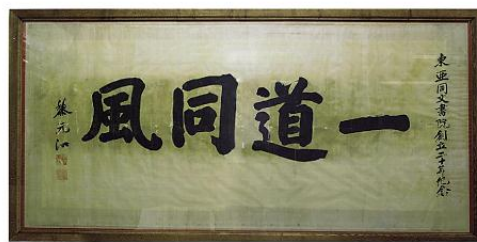 東亞同文書院創立二十年紀念
一道同風
黎元洪